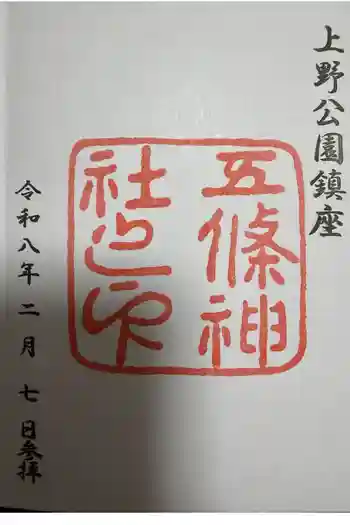 上野公園鎮座
五條神
社之印
令和八年二月七日参拝